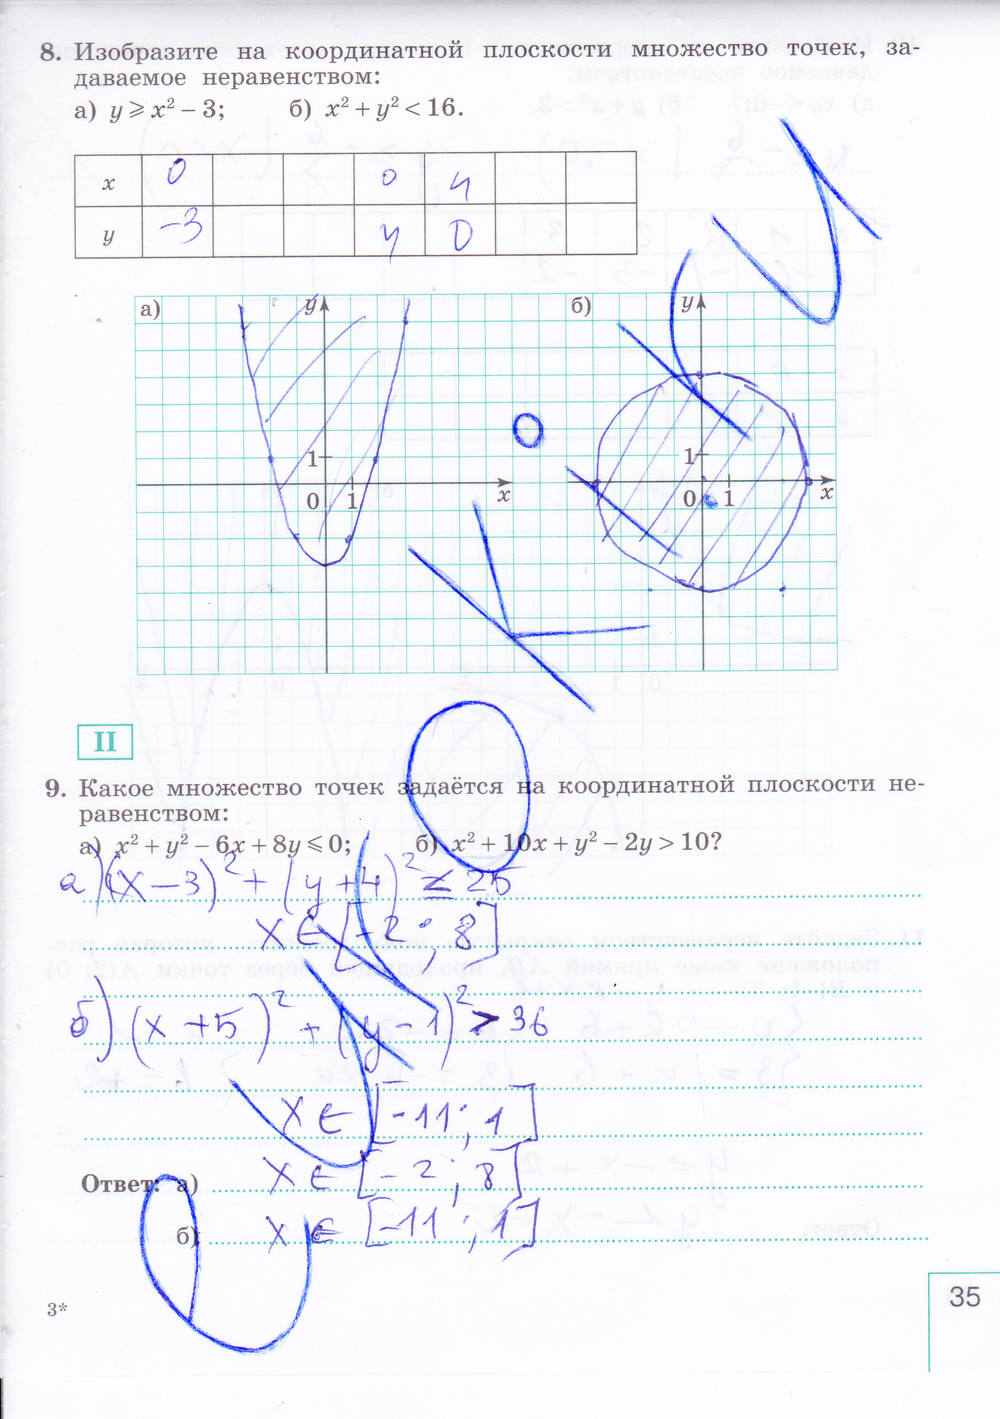 8. Изобразите на координатной плоскости множество точек, за-
даваемое неравенством:
а) y ⩾ x² – 3; б) x² + y² < 16.
x 0 0 4
y -3 4 0
а) y б) y
1 1
0 1 x 0 1 x
II
9. Какое множество точек задаётся на координатной плоскости не-
равенством:
а) x² + y² – 6x + 8y ⩽ 0; б) x² + 10x + y² – 2y > 10?
а) (x – 3)² + (y + 4)² ≤ 25
x ∈ [-2; 8]
б) (x + 5)² + (y – 1)² > 36
x ∈ [-11; 1]
Ответ: а) x ∈ [-2; 8]
б) x ∈ [-11; 1]
3*
35